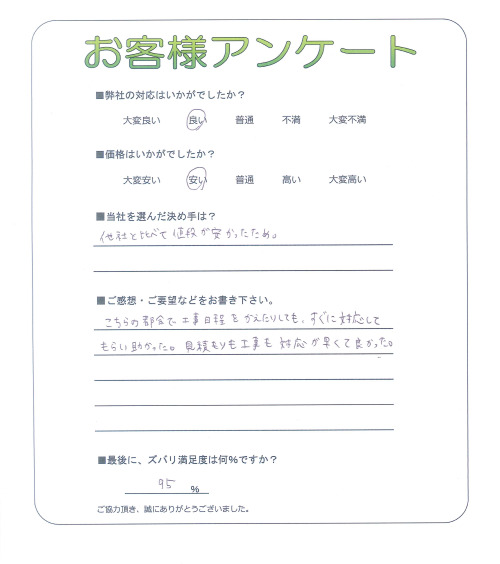 お客様アンケート
■弊社の対応はいかがでしたか？
大変良い 良い 普通 不満 大変不満
■価格はいかがでしたか？
大変安い 安い 普通 高い 大変高い
■当社を選んだ決め手は？
他社と比べて値段が安かったため。
■ご感想・ご要望などをお書き下さい。
こちらの都合で工事日程をかえたりしても、すぐに対応して
もらい助かった。見積もりも工事も対応が早くて良かった。
■最後に、ズバリ満足度は何%ですか？
95 %
ご協力頂き、誠にありがとうございました。